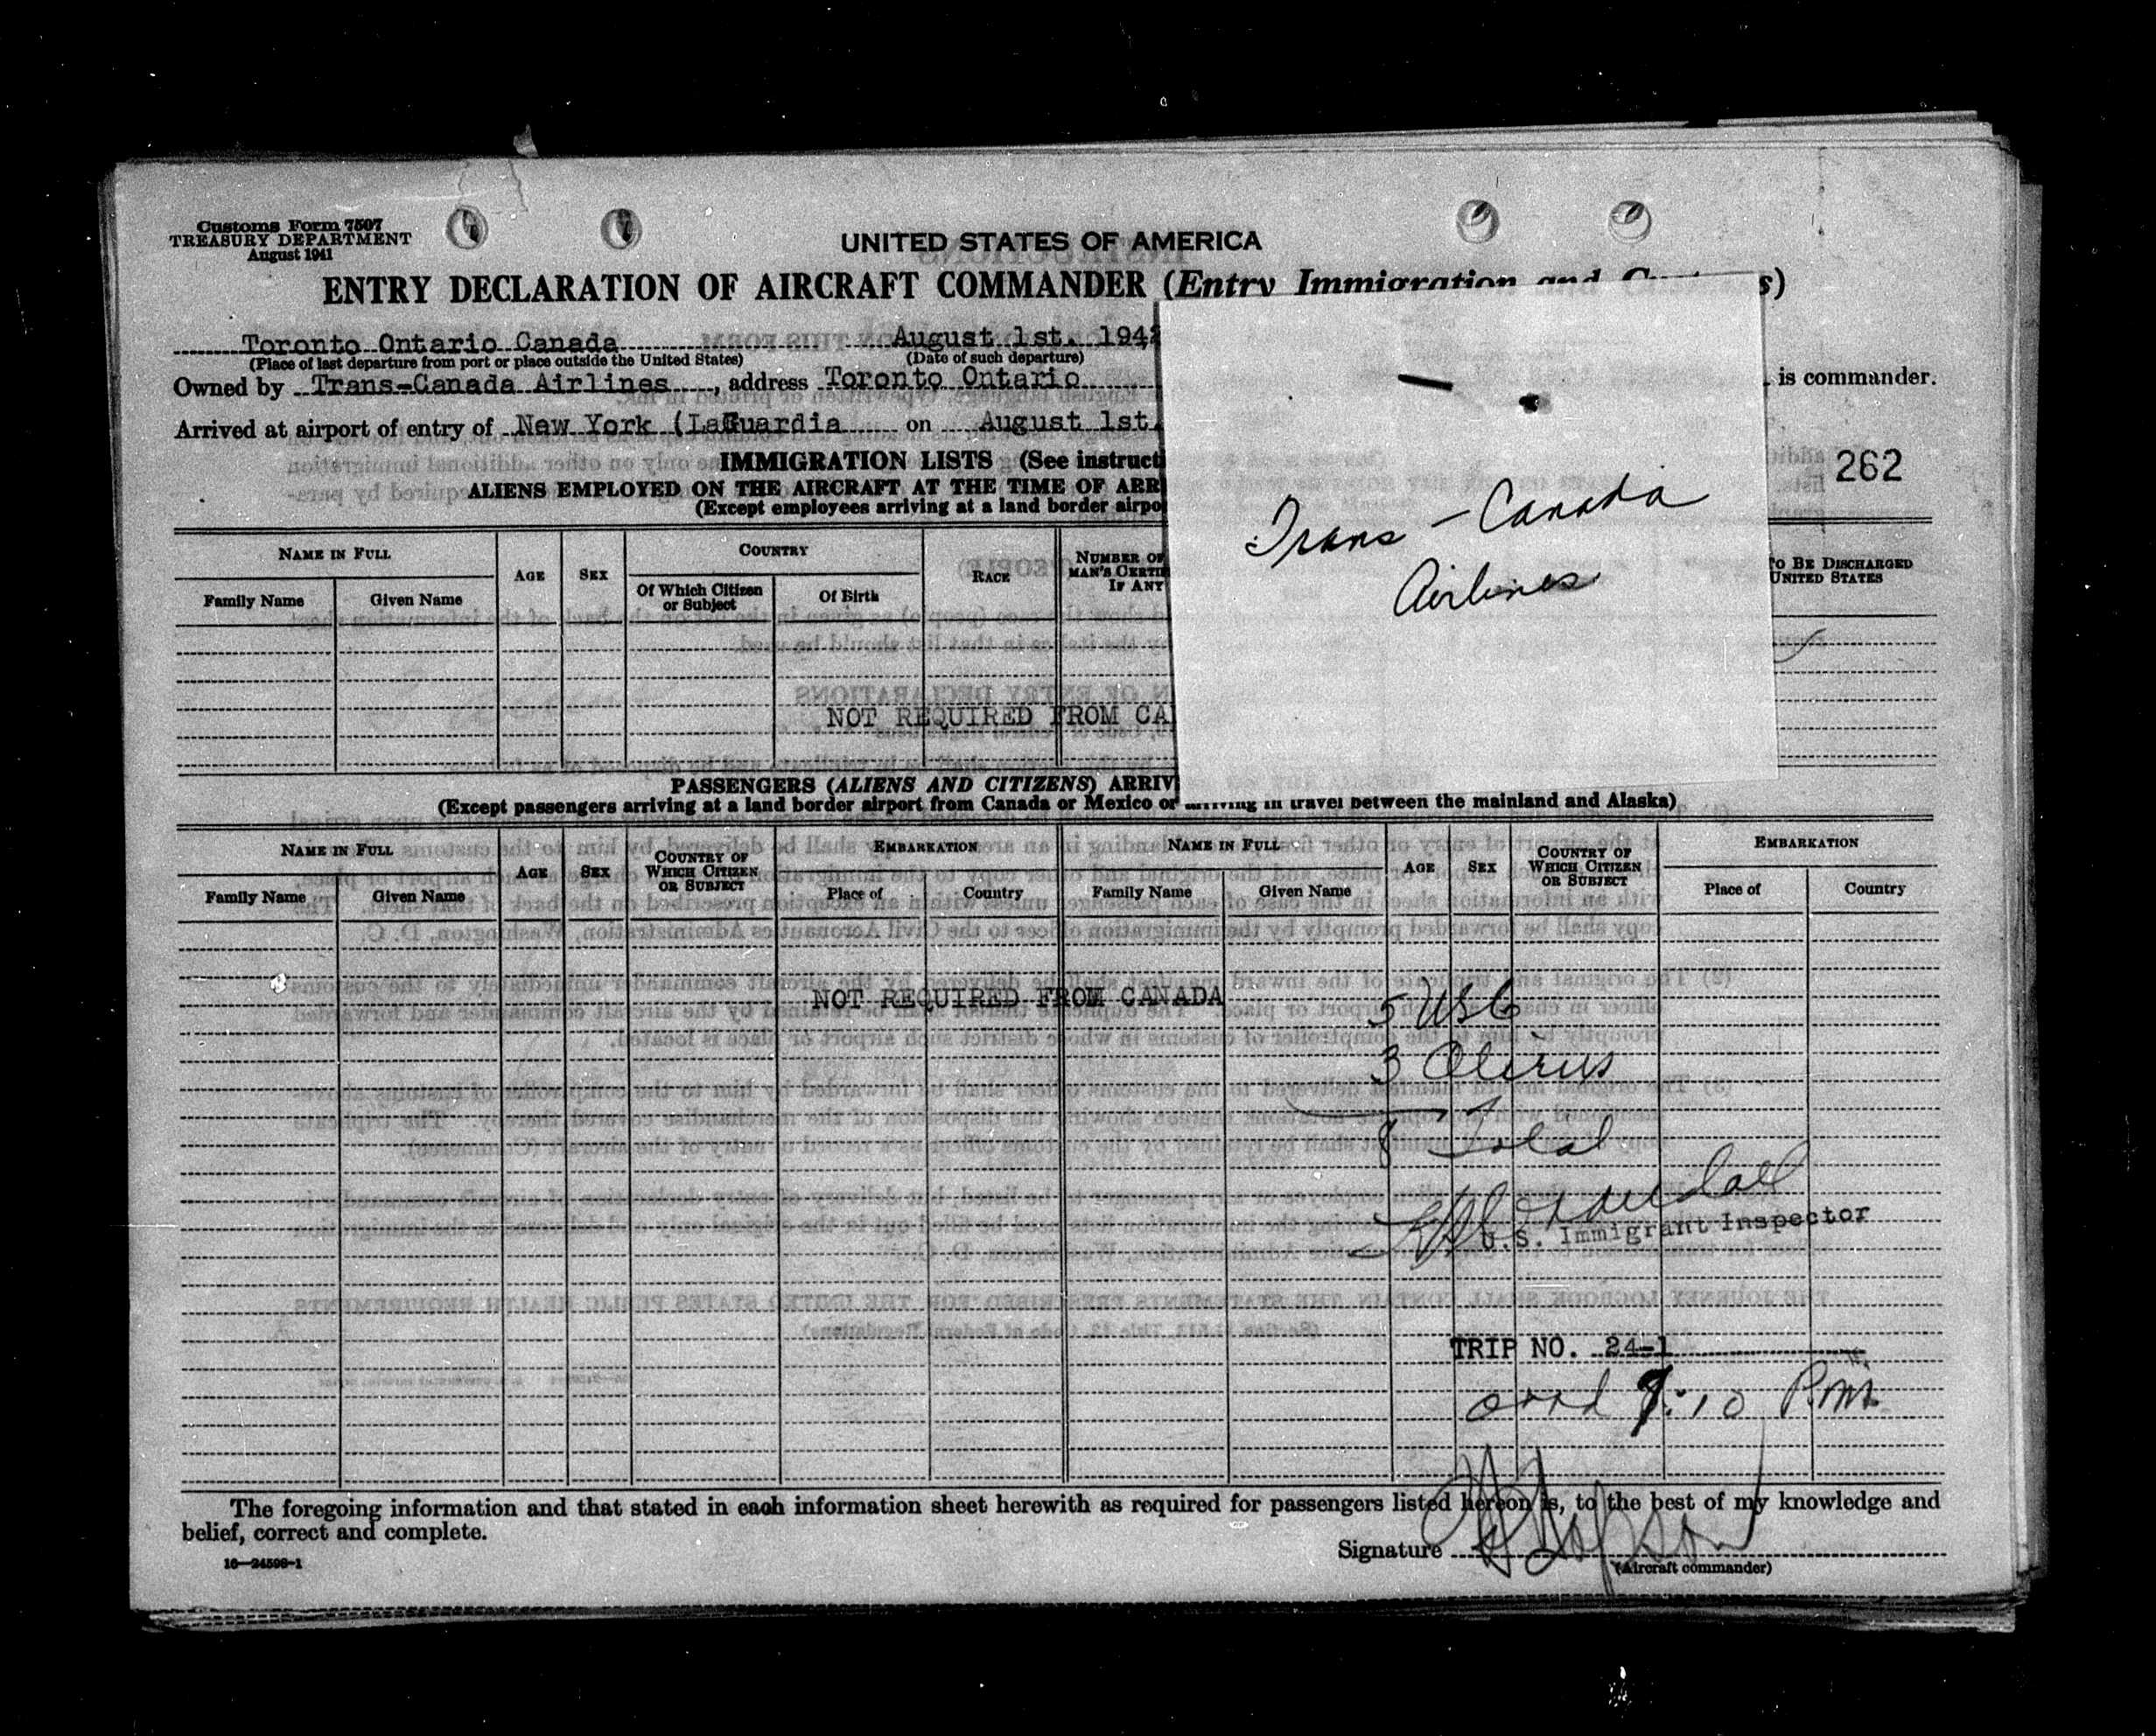 Customs Form 7507
TREASURY DEPARTMENT
August 1941
UNITED STATES OF AMERICA
ENTRY DECLARATION OF AIRCRAFT COMMANDER (Entry Immigration and
Toronto Ontario Canada August 1st. 1942
(Place of last departure from port or place outside the United States) (Date of such departure)
Owned by Trans-Canada Airlines, address Toronto Ontario is commander.
Arrived at airport of entry of New York (LaGuardia on August 1st.
262
IMMIGRATION LISTS (See
ALIENS EMPLOYED ON THE AIRCRAFT AT THE TIME OF
(Except employees arriving at a land border
Trans-Canada
Airlines
NAME IN FULL AGE SEX COUNTRY RACE NUMBER OF
IF ANY
TO BE DISCHARGED
UNITED STATES
Family Name Given Name Of Which Citizen or Subject Of Birth
NOT REQUIRED FROM
PASSENGERS (ALIENS AND CITIZENS)
(Except passengers arriving at a land border airport from Canada or Mexico or arriving in travel between the mainland and Alaska)
NAME IN FULL AGE SEX COUNTRY OF WHICH CITIZEN OR SUBJECT EMBARKATION NAME IN FULL AGE SEX COUNTRY OF WHICH CITIZEN OR SUBJECT EMBARKATION
Family Name Given Name Place of Country Family Name Given Name Place of Country
NOT REQUIRED FROM CANADA
5 USC
3 Aliens
8 Total
U.S. Immigrant Inspector
TRIP NO. 24-1
:10 P.M.
The foregoing information and that stated in each information sheet herewith as required for passengers listed hereon is, to the best of my knowledge and
belief, correct and complete.
Signature
(Aircraft commander)
16—24598-1